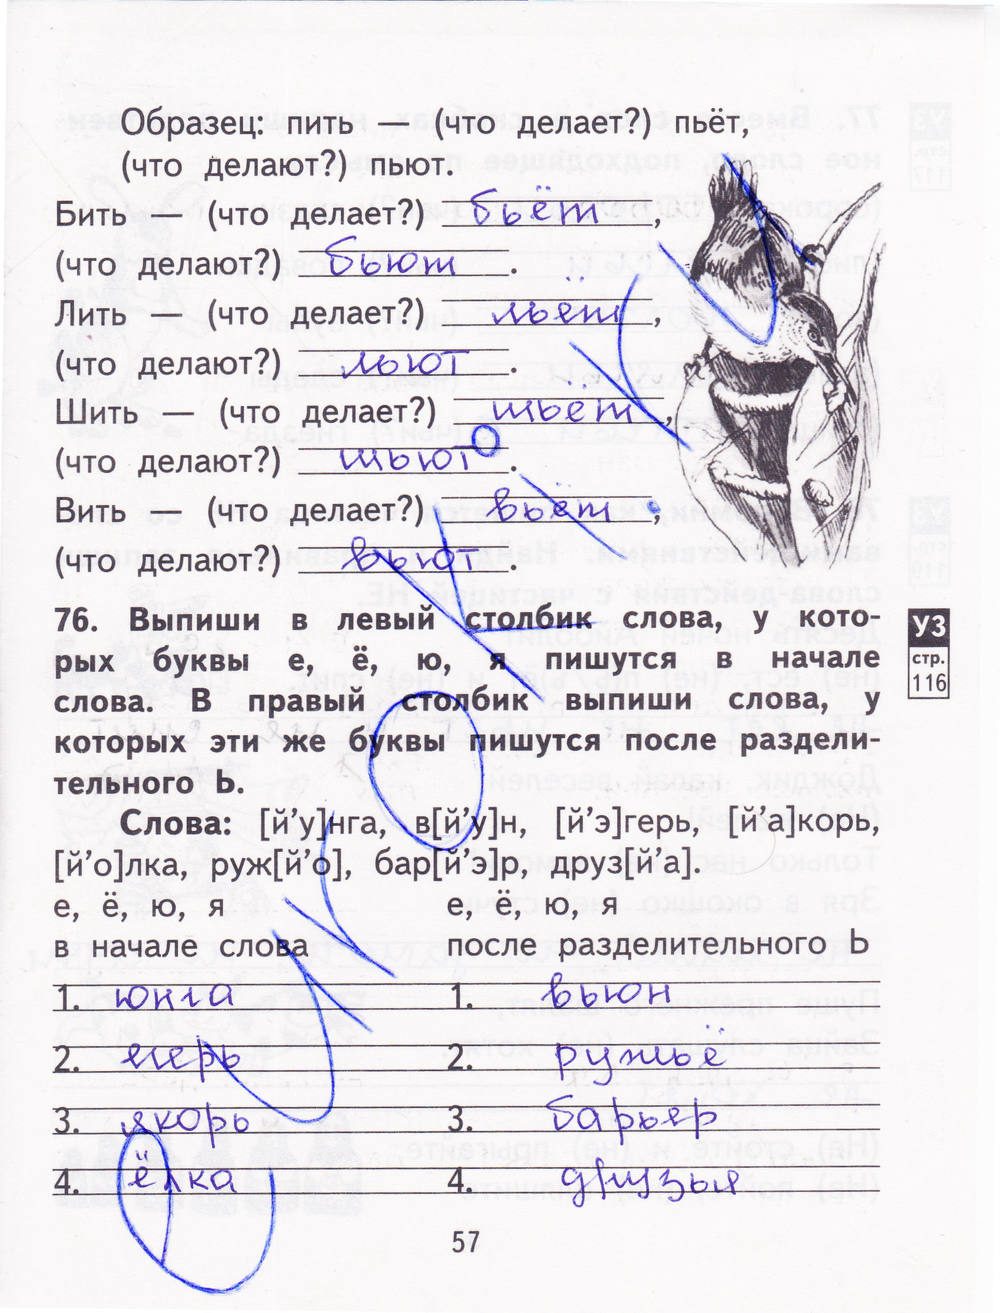 Образец: пить — (что делает?) пьёт,
(что делают?) пьют.
Бить — (что делает?) бьёт,
(что делают?) бьют.
Лить — (что делает?) льёт,
(что делают?) льют.
Шить — (что делает?) шьёт,
(что делают?) шьют.
Вить (что делает?) вьёт,
(что делают?) вьют.
76. Выпиши в левый столбик слова, у кото-
рых буквы е, ё, ю, я пишутся в начале
слова. В правый столбик выпиши слова, у
которых эти же буквы пишутся после раздели-
тельного Ь.
УЗ
стр.
116
Слова: [й’у]нга, в[й’у]н, [й’э]герь, [й’а]корь,
[й’о]лка, руж[й’о], бар[й’э]р, друз[й’а].
е, ё, ю, я е, ё, ю, я
в начале слова после разделительного Ь
1. юнга 1. вьюн
2. егерь 2. ружьё
3. якорь 3. барьер
4. ёлка 4. друзья
57